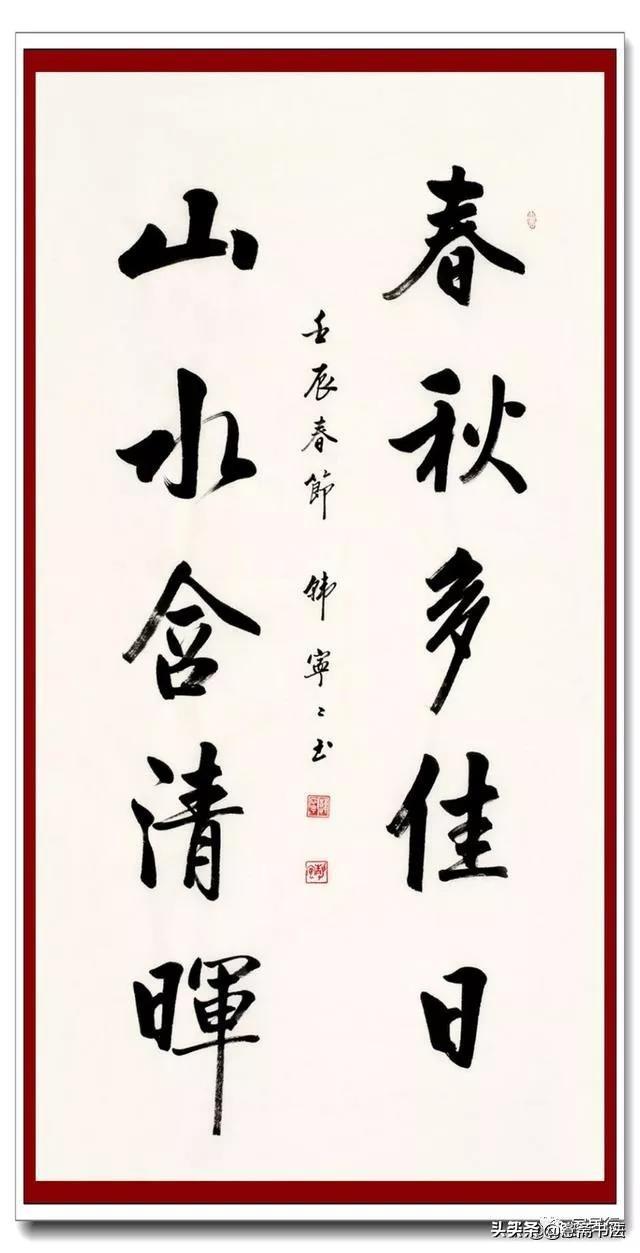 春秋多佳日
山水含清暉
壬辰春節 韩寧〻书
头条 斋书法